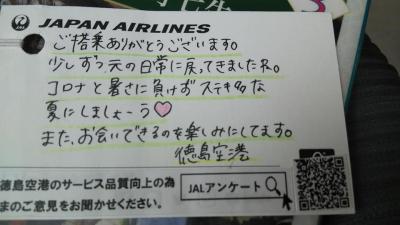 JAPAN AIRLINES
ご搭乗ありがとうございます。
少しずつ、元の日常に戻ってきましたネ。
コロナと暑さに負けずステキ多な
夏にしましょーう♡
また、お会いできるのを楽しみにしてます。
徳島空港
徳島空港のサービス品質向上の為
まのご意見をお聞かせください。
JALアンケート